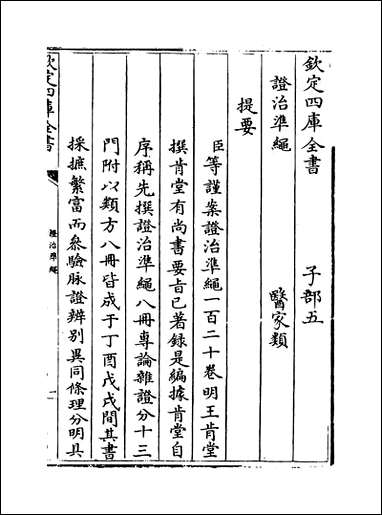 欽定四庫全書　　　子部五
證治準繩　　　　　醫家類
提要
臣等謹案證治準繩一百二十卷明王肯堂
撰肯堂有尚書要旨已著録是編據肯堂自
序稱先撰證治準繩八冊專論雜證分十三
門附以類方八冊皆成于丁酉戊戌間其書
採摭繁富而參驗脉證辨别異同條理分明具
欽定四庫全書
證治準繩
一